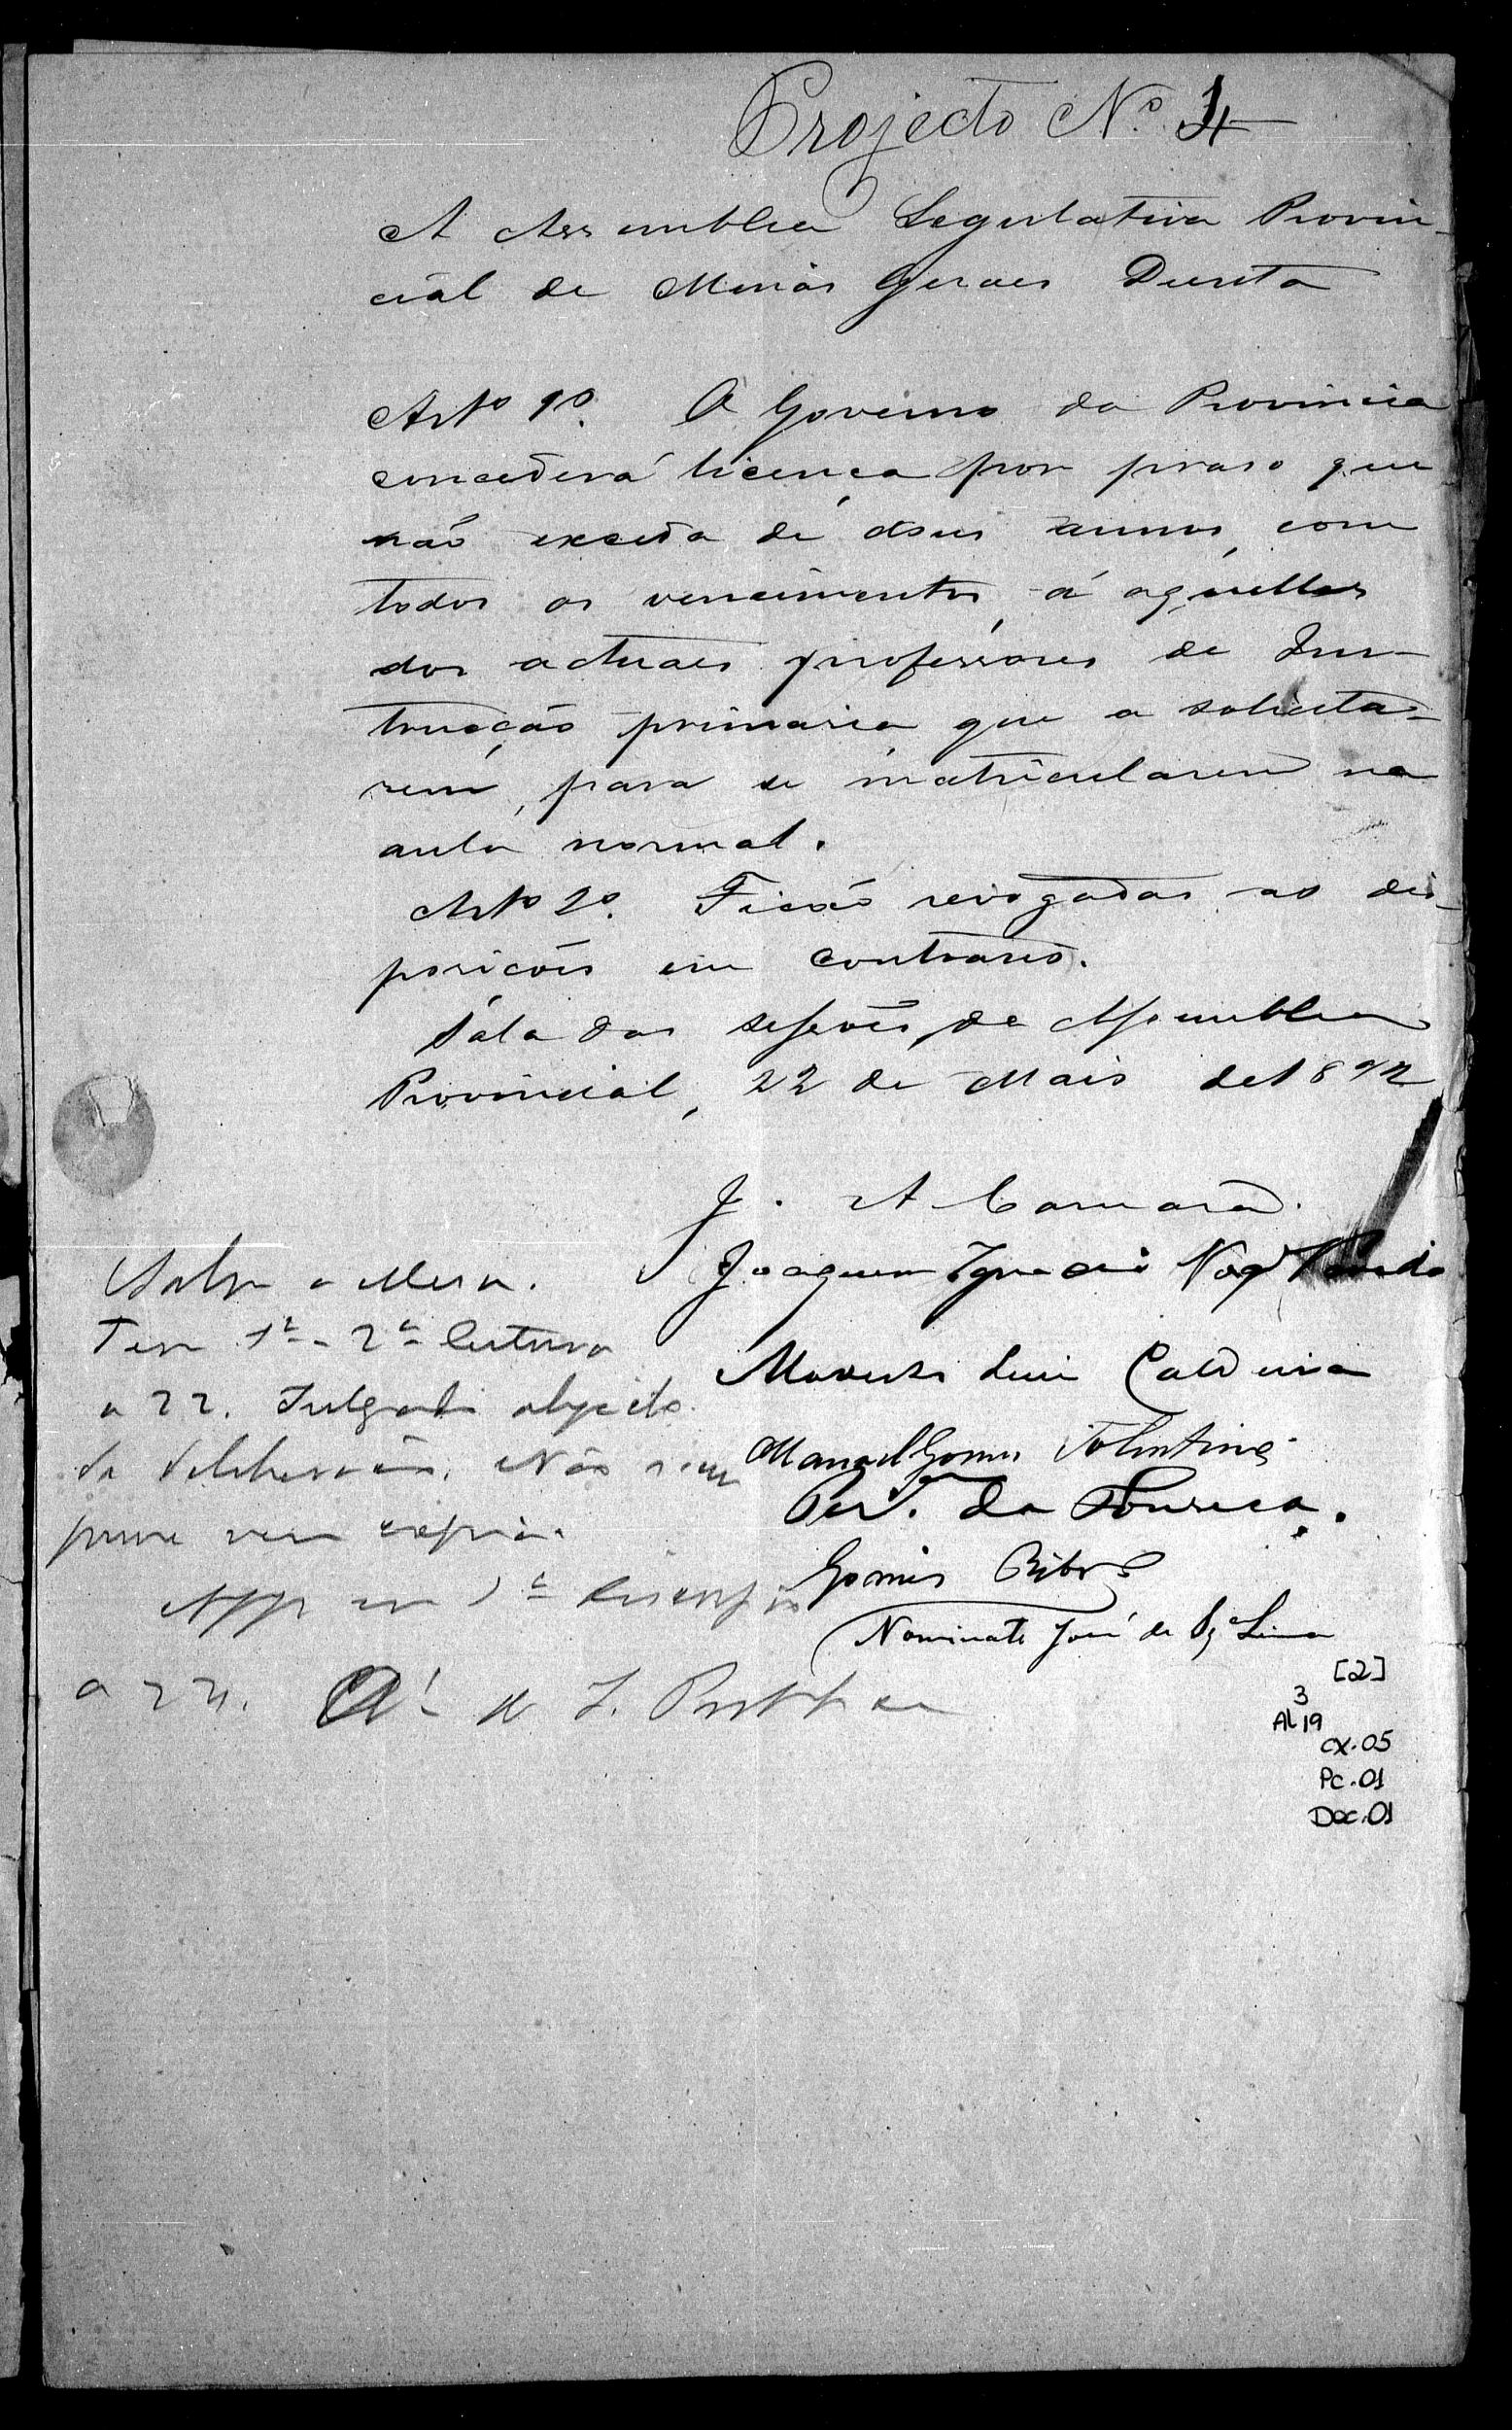 Projecto Nº 4
A Assemblea Legislativa Provin-
cial de Minas Geraes Decreta
Artº 1º. O Governo da Provincia
concederá licença por praso que
não exceda de dous annos, com
todos os vencimentos, á aquelles
dos actuaes professores de Ins-
trucção primaria que a solicita-
rem, para se matricularem na
aula normal.
Artº 2º. Ficão revogadas as dis-
posicões em contrario.
Sala das sessões da Assemblea
Provincial, 22 de Maio de 18
J. A Camara.
Joaquim Ignacio Nog
Modesto Luiz Caldeira
Manoel Gomes Tolentino
da Fonseca.
Gomes Ribrº
Nominato José de Sz Lima
a Mesa.
Teve 1ª e 2ª leitura
a 22. Julgado objecto
de deliberação. Não se im
prime sem copia.
App em 1ª discussão
a 24.
[2]
3
AL 19
CX.05
Pc.01
Doc.01